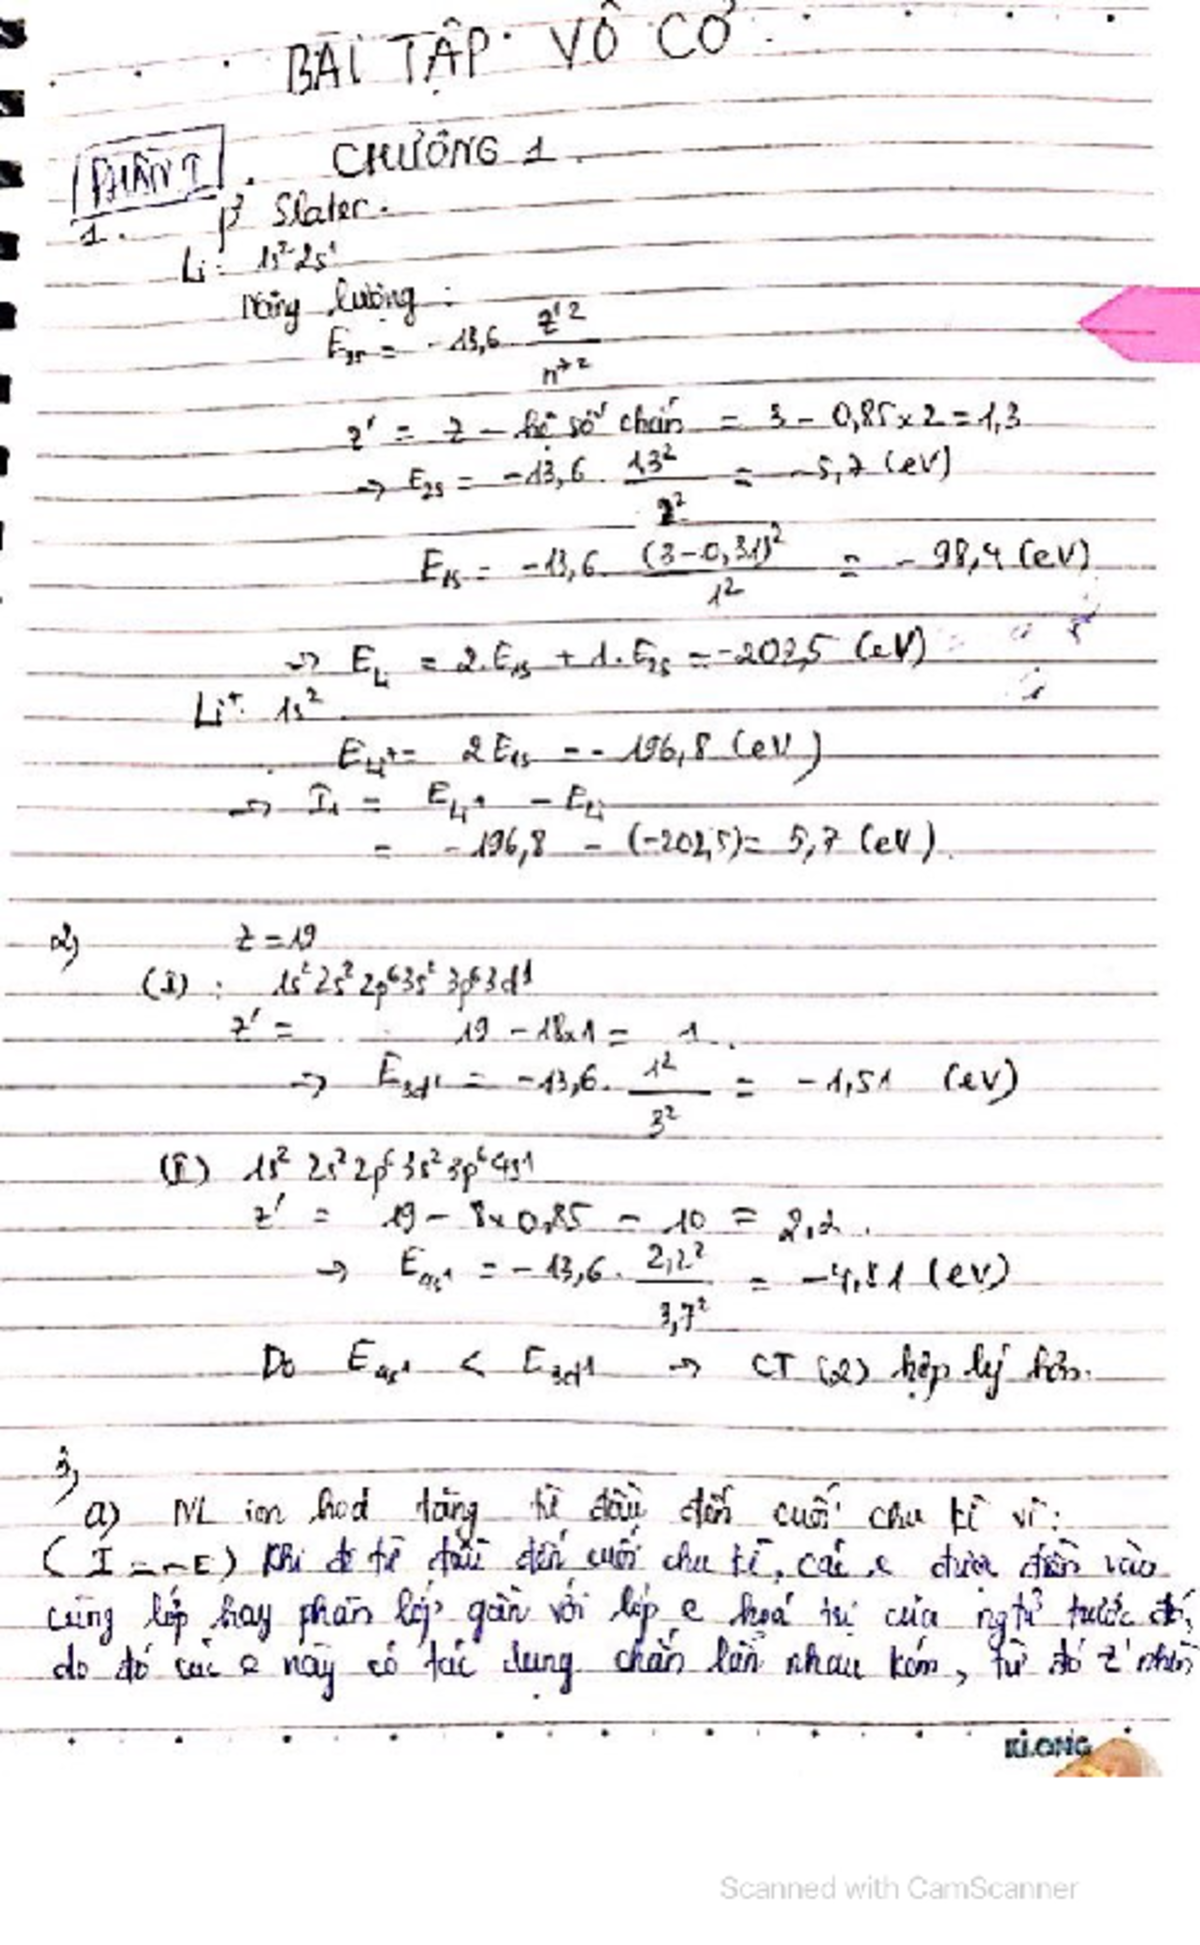 BÀI TẬP VÔ CƠ
PHẦN I. CHƯƠNG 1.
1. Slater.
Li: 1s² 2s¹
Năng lượng:
E₂ₛ = -13,6 Z'² / n*²
Z' = Z - hệ số chắn = 3 - 0,85 x 2 = 1,3
→ E₂ₛ = -13,6 . 1,3² / 2² = -5,7 (eV)
E₁ₛ = -13,6 . (3-0,31)² / 1² = - 98,4 (eV)
→ E_Li = 2.E₁ₛ + 1.E₂ₛ = -202,5 (eV)
Li⁺: 1s²
E_Li⁺ = 2E₁ₛ = - 196,8 (eV)
→ I₁ = E_Li⁺ - E_Li
= - 196,8 - (-202,5) = 5,7 (eV).
2) Z = 19
(I): 1s² 2s² 2p⁶ 3s² 3p⁶ 3d¹
Z' = 19 - 18x1 = 1.
→ E₃d¹ = -13,6 . 1² / 3² = -1,51 (eV)
(II) 1s² 2s² 2p⁶ 3s² 3p⁶ 4s¹
Z' = 19 - 8x0,85 - 10 = 2,2.
→ E₄s¹ = -13,6 . 2,2² / 3,7² = -4,81 (eV)
Do E₄s¹ < E₃d¹ → CT (2) hợp lý hơn.
3,
a) NL ion hoá tăng từ đầu đến cuối chu kì vì:
(I = -E) Khi đi từ đầu đến cuối chu kì, các e được điền vào
cùng lớp hay phân lớp gần với lớp e hoá trị của ngtử trước đó,
do đó các e này có tác dụng chắn lẫn nhau kém, từ đó Z' nhìn
KLONG
Scanned with CamScanner